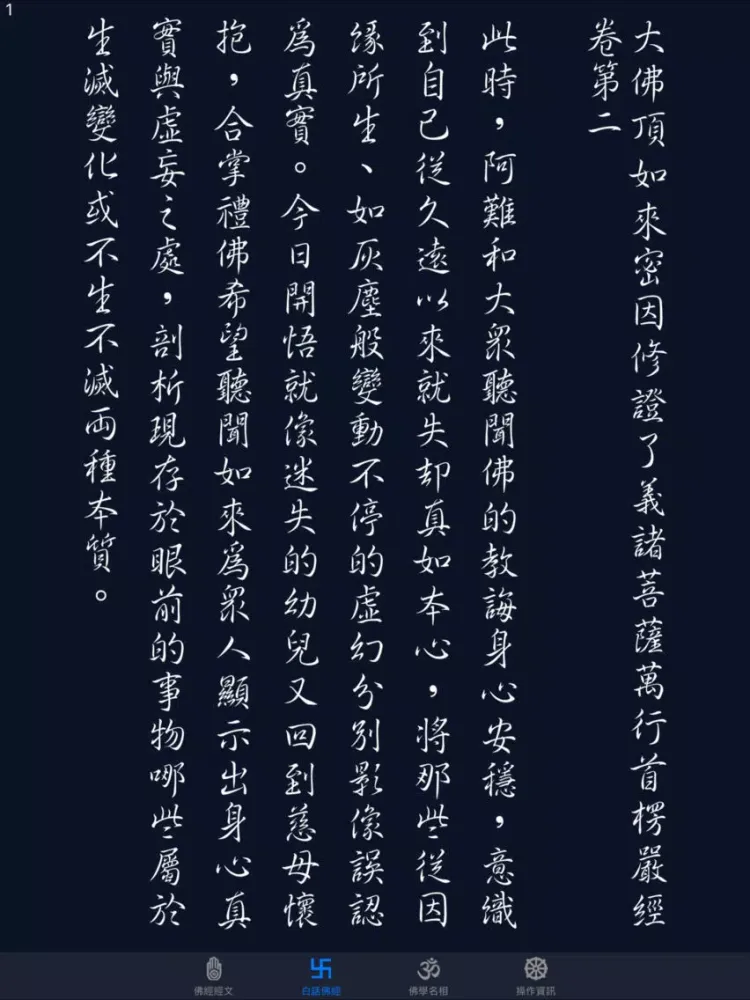 1
大佛頂如來密因修證了義諸菩薩萬行首楞嚴經
卷第二
此時，阿難和大眾聽聞佛的教誨身心安穩，意識
到自己從久遠以來就失却真如本心，將那些從因
緣所生、如灰塵般變動不停的虛幻分別影像誤認
為真實。今日開悟就像迷失的幼兒又回到慈母懷
抱，合掌禮佛希望聽聞如來為眾人顯示出身心真
實與虛妄之處，剖析現存於眼前的事物哪些屬於
生滅變化或不生不滅兩種本質。
佛經經文
白話佛經
佛學名相
操作資訊